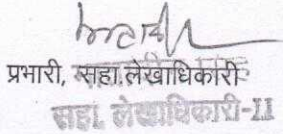 प्रभारी, सहा.लेखाधिकारी
सहा. लेखाधिकारी-II